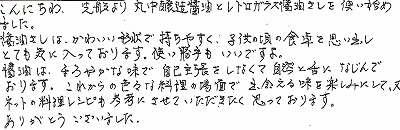 こんにちわ、 先般より 丸中醸造醤油とレトロガラス醤油さしを使い始め
ました。
醤油さしは、かわいい形状で持ちやすく、子供の頃の食卓を思い出し
とても気に入っております。使い勝手もいいですよ。
醤油は、まろやかな味で自己主張をしなくて自然と舌になじんで
おります。これからの色々な料理の場面で出会える味を楽しみにして、又
ネットの料理レシピも参考にさせていただきたく思っております。
ありがとうございました。